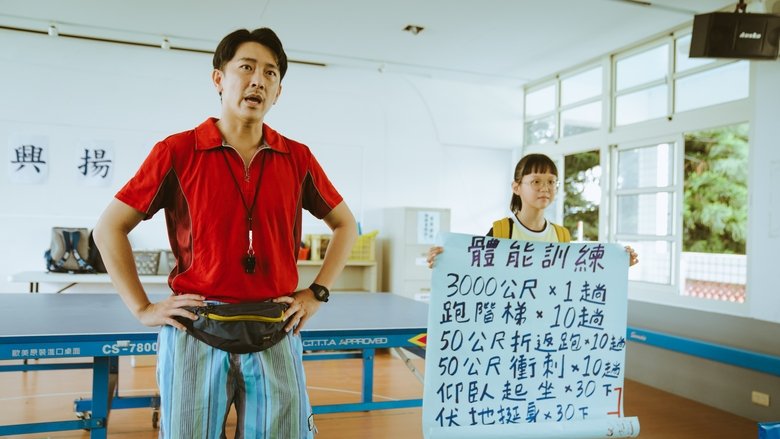 興 揚
體能訓練
3000公尺×1趟
跑階梯×10趟
50公尺折返跑×10趟
50公尺衝刺×10趟
仰臥起坐×30下
伏地挺身×30下
歐美原裝進口桌面 CS-7800 C.T.T.T.A APPROVED